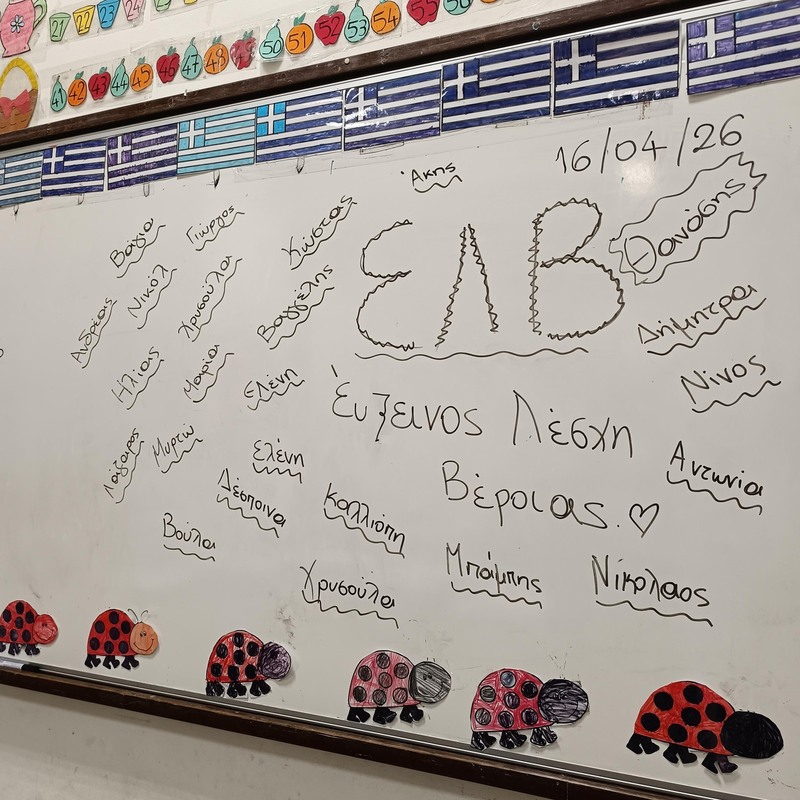 21 22 23 24
41 42 43 44 45 46 47 48 49 50 51 52 53 54 55 56
16/04/26
Άκης
ΕΛΒ
Θανάσης
Βάγια
Γιώργος
Κώστας
Ανδρέας
Νικόλ
Χρυσούλα
Βαγγέλης
Δήμητρα
Ηλίας
Μαρία
Ελένη
Νίνος
Έυξεινος Λέσχη
Λάζαρος
Μυρτώ
Ελένη
Αντωνία
Δέσποινα
Καλλιόπη
Βέροιας. ♡
Βούλα
Χρυσούλα
Μπάμπης
Νίκολαος